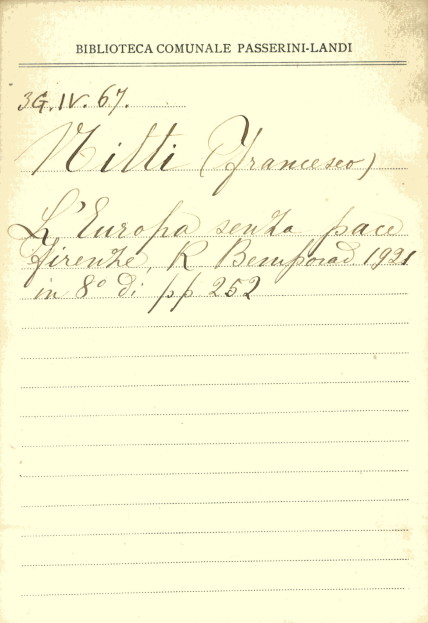 BIBLIOTECA COMUNALE PASSERINI-LANDI
3G.IV.67.
Nitti (Francesco)
L'Europa senza pace
Firenze, R Bemporad 1921
in 8º di pp 252